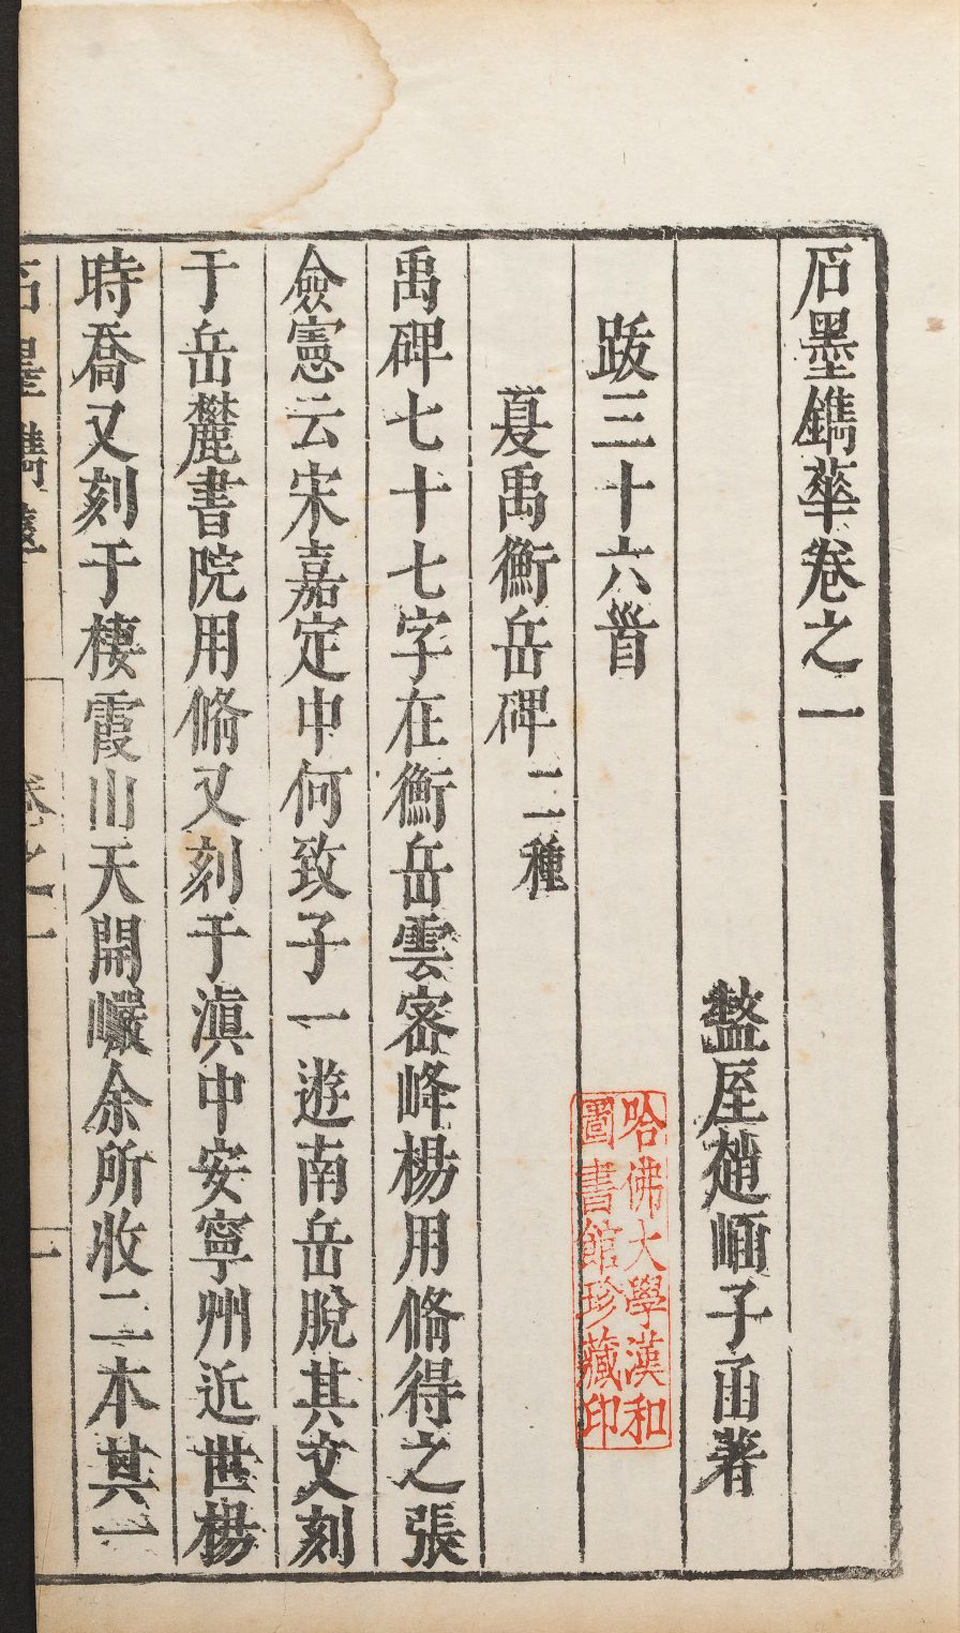 石墨鐫華卷之一
盩厔趙崡子函著
跋三十六首
夏禹衡岳碑二種
禹碑七十七字在衡岳雲密峰楊用脩得之張
僉憲云宋嘉定中何致子一遊南岳脫其文刻
于岳麓書院用脩又刻于滇中安寧州近世楊
時喬又刻于棲霞山天開巖余所收二本其一
石墨鐫華
卷之一
一
哈佛大學漢和
圖書館珍藏印